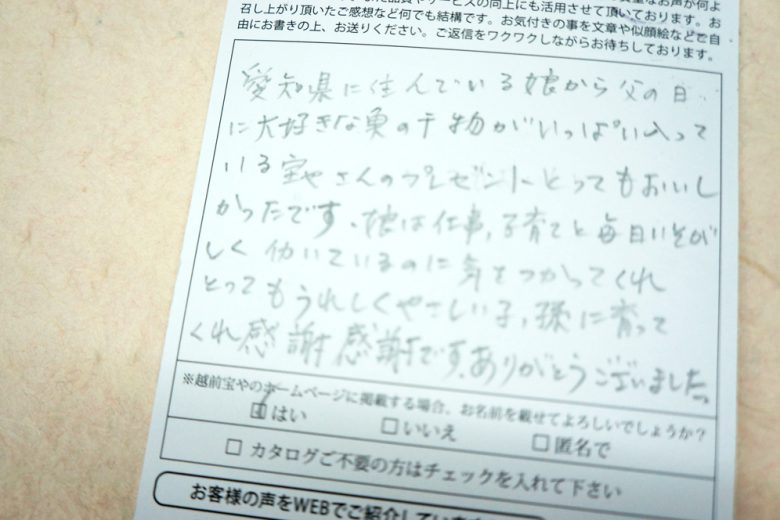 召し上がり頂いたご感想など何でも結構です。お気付きの事を文章や似顔絵などご自
由にお書きの上、お送りください。ご返信をワクワクしながらお待ちしております。
愛知県に住んでいる娘から父の日
に大好きな魚の干物がいっぱい入って
いる宝やさんのプレゼントとってもおいし
かったです。娘は仕事,子育てと毎日いそが
しく働いているのに気をつかってくれ
とってもうれしくやさしい子,孫に育って
くれ感謝感謝です。ありがとうございました。
※越前宝やのホームページに掲載する場合、お名前を載せてよろしいでしょうか？
はい □いいえ □匿名で
□ カタログご不要の方はチェックを入れて下さい
お客様の声をWEBでご紹介してい